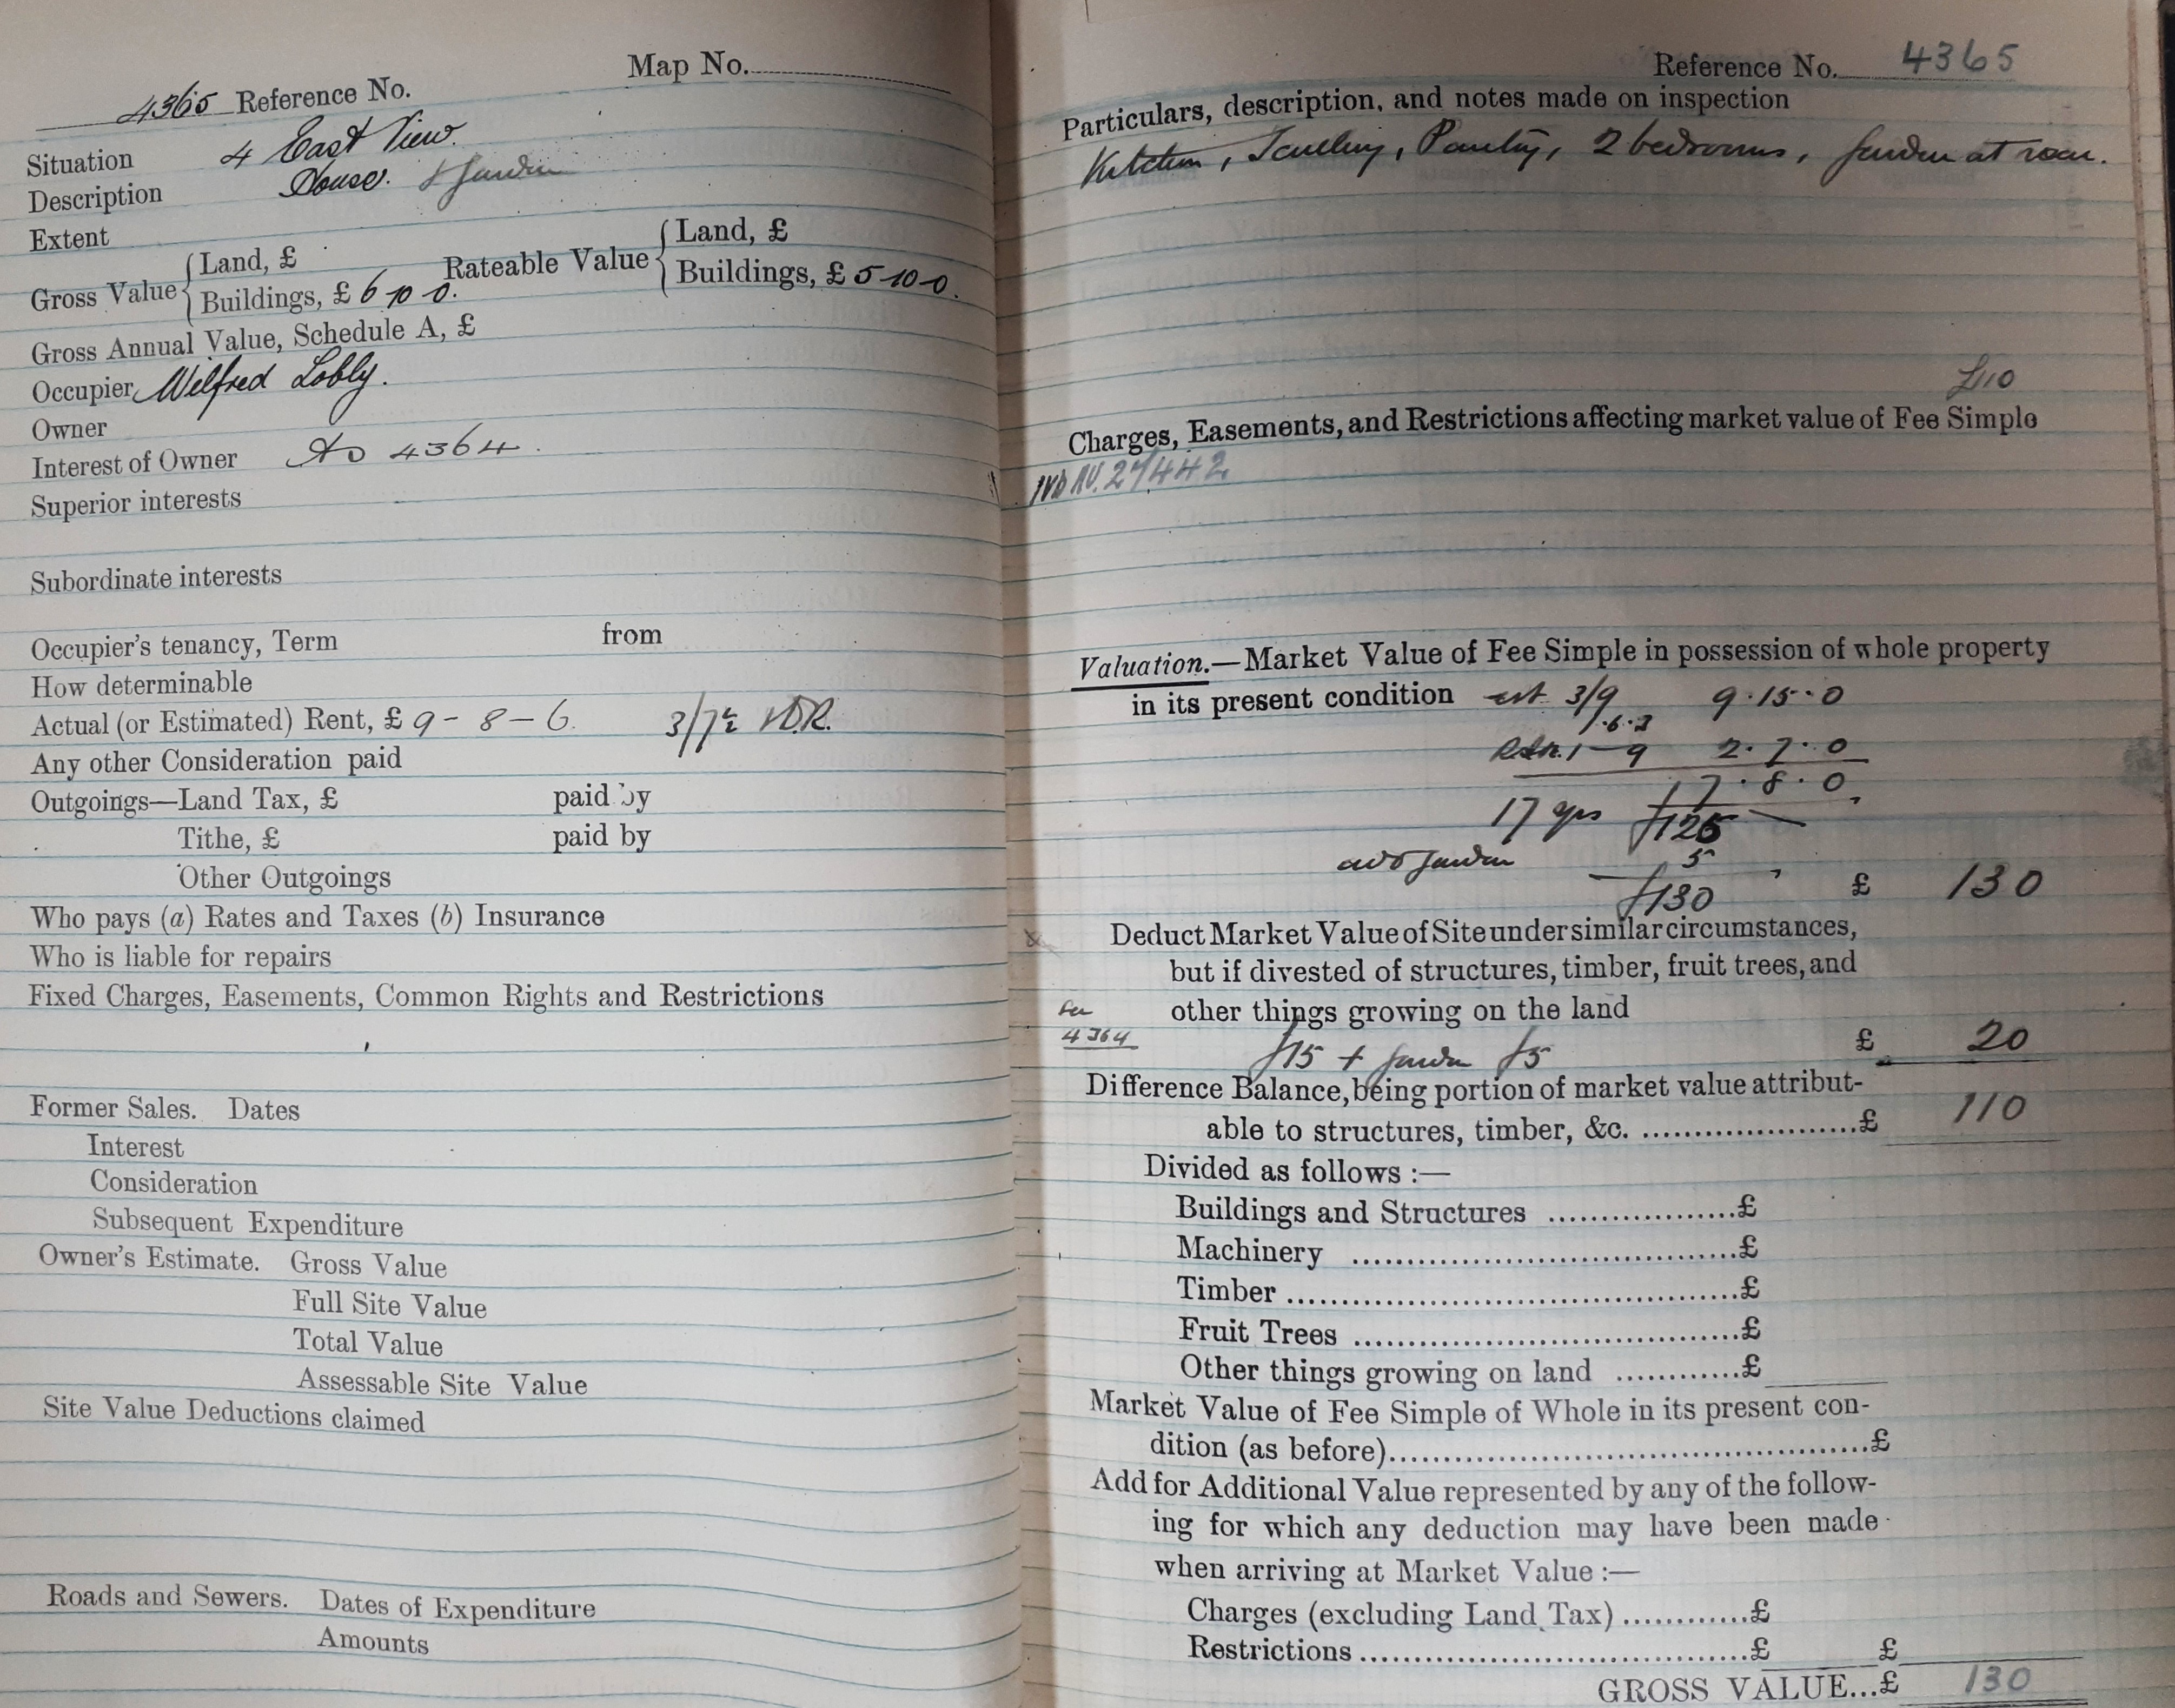 Map No.
4365 Reference No.
Situation 4 East View.
Description House. & Garden
Extent
Gross Value { Land, £
Buildings, £ 6 10 0.
Rateable Value { Land, £
Buildings, £ 5 10 0.
Gross Annual Value, Schedule A, £
Occupier Wilfred Lobly.
Owner
Interest of Owner As 4364.
Superior interests
Subordinate interests
Occupier's tenancy, Term from
How determinable
Actual (or Estimated) Rent, £ 9 - 8 - 6. 3/7½
Any other Consideration paid
Outgoings—Land Tax, £ paid by
Tithe, £ paid by
Other Outgoings
Who pays (a) Rates and Taxes (b) Insurance
Who is liable for repairs
Fixed Charges, Easements, Common Rights and Restrictions
Former Sales. Dates
Interest
Consideration
Subsequent Expenditure
Owner's Estimate. Gross Value
Full Site Value
Total Value
Assessable Site Value
Site Value Deductions claimed
Roads and Sewers. Dates of Expenditure
Amounts
Reference No. 4365
Particulars, description, and notes made on inspection
Kitchen, Scullery, Pantry, 2 bedrooms, garden at rear.
£110
Charges, Easements, and Restrictions affecting market value of Fee Simple
27442
Valuation.—Market Value of Fee Simple in possession of whole property
in its present condition est 3/9 9.15.0
2.7.0
7.8.0
17 yrs £125
add garden 5
£130 £ 130
Deduct Market Value of Site under similar circumstances,
but if divested of structures, timber, fruit trees, and
other things growing on the land
4364
£15 + garden £5 £ 20
Difference Balance, being portion of market value attribut-
able to structures, timber, &c. ....................£ 110
Divided as follows :—
Buildings and Structures ..................£
Machinery ....................................£
Timber ..........................................£
Fruit Trees ....................................£
Other things growing on land ............£
Market Value of Fee Simple of Whole in its present con-
dition (as before)............................................£
Add for Additional Value represented by any of the follow-
ing for which any deduction may have been made
when arriving at Market Value :—
Charges (excluding Land Tax) ............£
Restrictions ....................................£ £
GROSS VALUE...£ 130